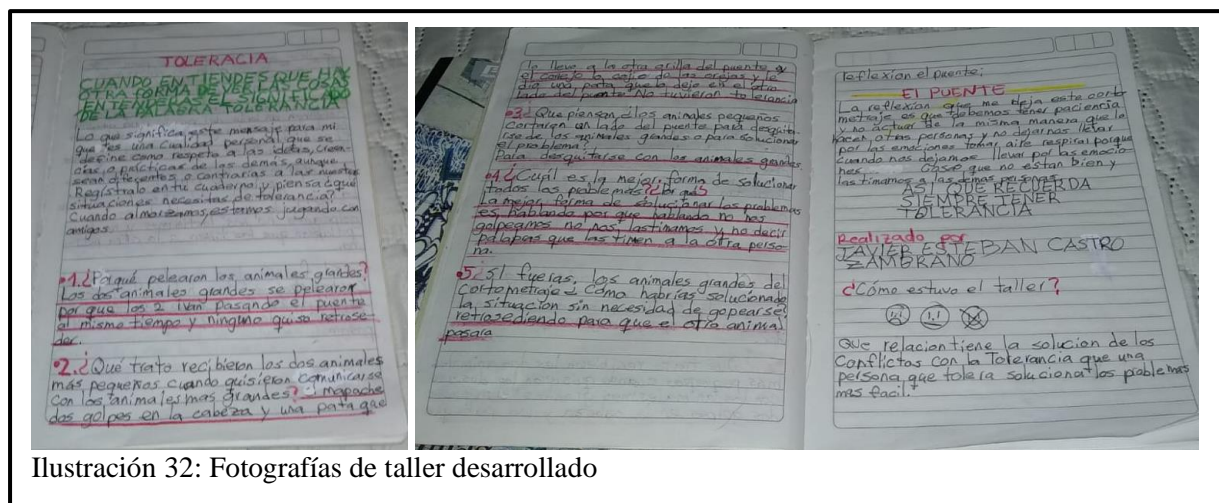 TOLERACIA
CUANDO ENTIENDES QUE HAY
OTRA FORMA DE VER LAS COSAS
ENTENDERAS EL SIGNIFICADO
DE LA PALABRA TOLERANCIA
Lo que significa este mensaje para mi
que tes una cualidad personal que se
define como respeto a las ideas, creen
cias o prácticas de los demás, aunque
sean diferentes o contrarias a las nuestras
Registralo en tu cuaderno y piensa ¿qué
situaciones necesitas de tolerancia?
Cuando almorzamos, estamos jugando con
amigos.
•1.¿Porqué pelearon los animales grandes?
Los dos animales grandes se pelearon
por que los 2 ivan pasando el puente
al mismo tiempo y ninguno quiso retrose-
der.
•2.¿Qué trato recibieron los dos animales
más pequeños cuando quisieron comunicarse
con los animales mas grandes? mapache
dos golpes en la cabeza y una pata que
lo llevo a la otra orilla del puente y
el conejo lo cojio de las orejas y le
dio una pata que lo dejo en el otro
lado del puente No tuvieron tolerancia
•3¿Que piensan los animales pequeños
cortaron un lado del puente para desquita-
rse de los animales grandes o para solucionar
el problema?
Para desquitarse con los animales grandes
•4¿Cuál es la mejor forma de solucionar
todos los problemas? ¿Por qué?
La mejor forma de solucionar los problemas
es, hablando por que hablando no nos
golpeamos no nos lastimamos y no decir
palabras que lastimen a la otra perso-
na.
•5¿Si fueras, los animales grandes del
cortometraje ¿Cómo habrías solucionado
la situación sin necesidad de gopearse?
retrosediendo para que el otro anima
pasara
leflexion el puente:
El PUENTE
La reflexión que me deja este corto
metraje es que debemos tener paciencia
y no actuar de la misma manera que lo
hacen otras personas y no dejarnos llevar
por las emociones tomar aire respirar porque
cuando nos dejamos llevar por las emocio-
nes cosas que no están bien y
lastimamos a las demas personas
ASI QUE RECUERDA
SIEMPRE TENER
TOLERANCIA
Realizado por
JAVIER ESTEBAN CASTRO
ZAMBRANO
¿Cómo estuvo el taller?
Que relacion tiene la solucion de los
Conflictos con la Tolerancia que una
persona que tolera soluciona los problemas
mas facil.
Ilustración 32: Fotografías de taller desarrollado